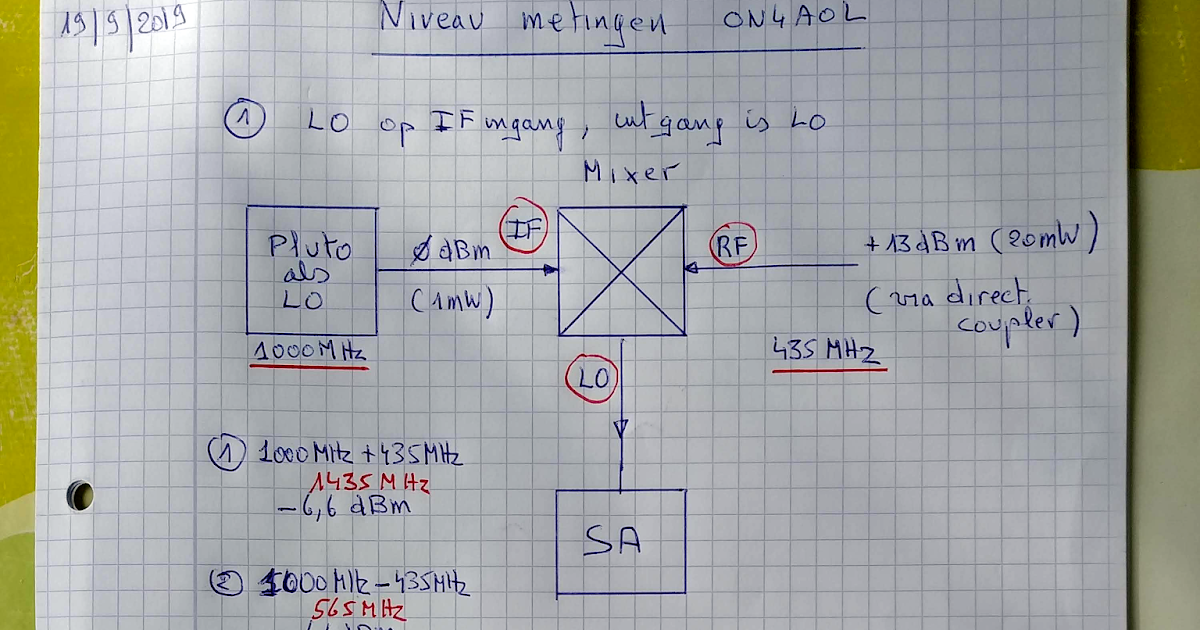 19/9/2019
Niveau metingen ON4AOL
① LO op IF ingang, uitgang is LO
Mixer
IF
RF
Pluto
als
LO
Ø dBm
(1mW)
+13 dBm (20mW)
(via direct.
coupler)
1000MHz
435 MHz
LO
① 1000MHz + 435MHz
1435 MHz
-6,6 dBm
SA
② 1000MHz - 435MHz
565 MHz